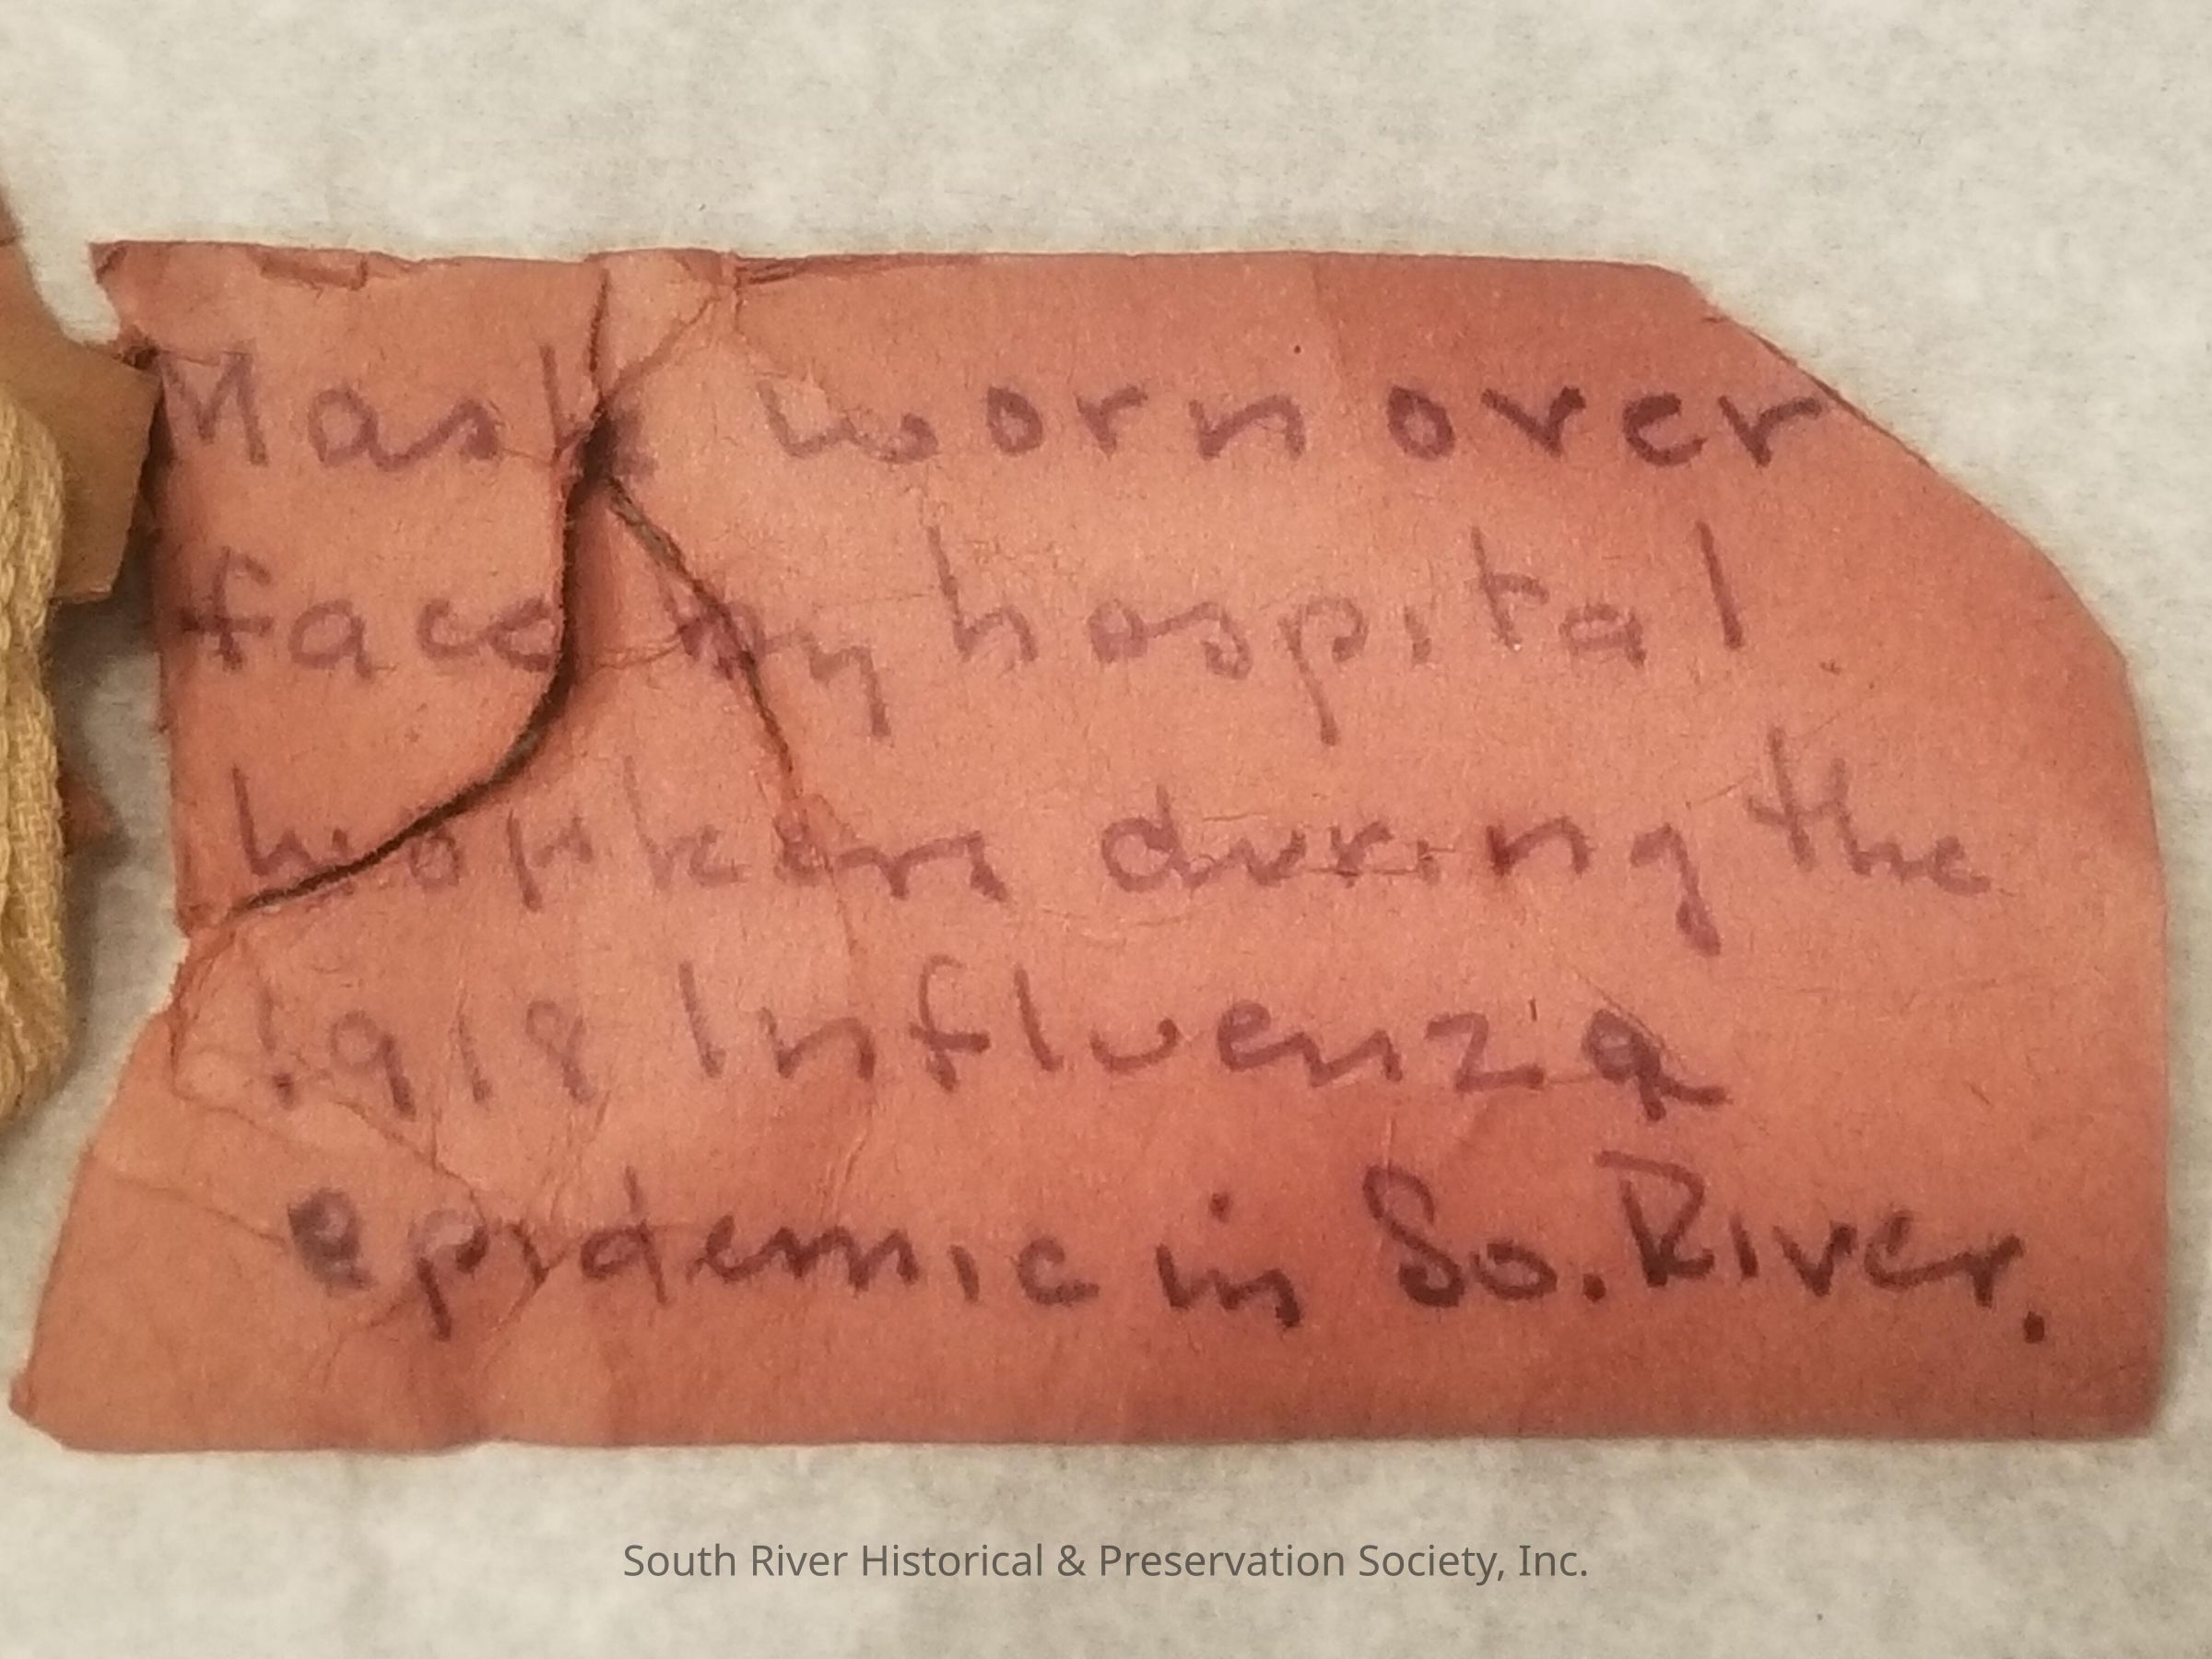 Mask worn over
face by hospital
workers during the
1918 Influenza
epidemic in So. River.
South River Historical & Preservation Society, Inc.